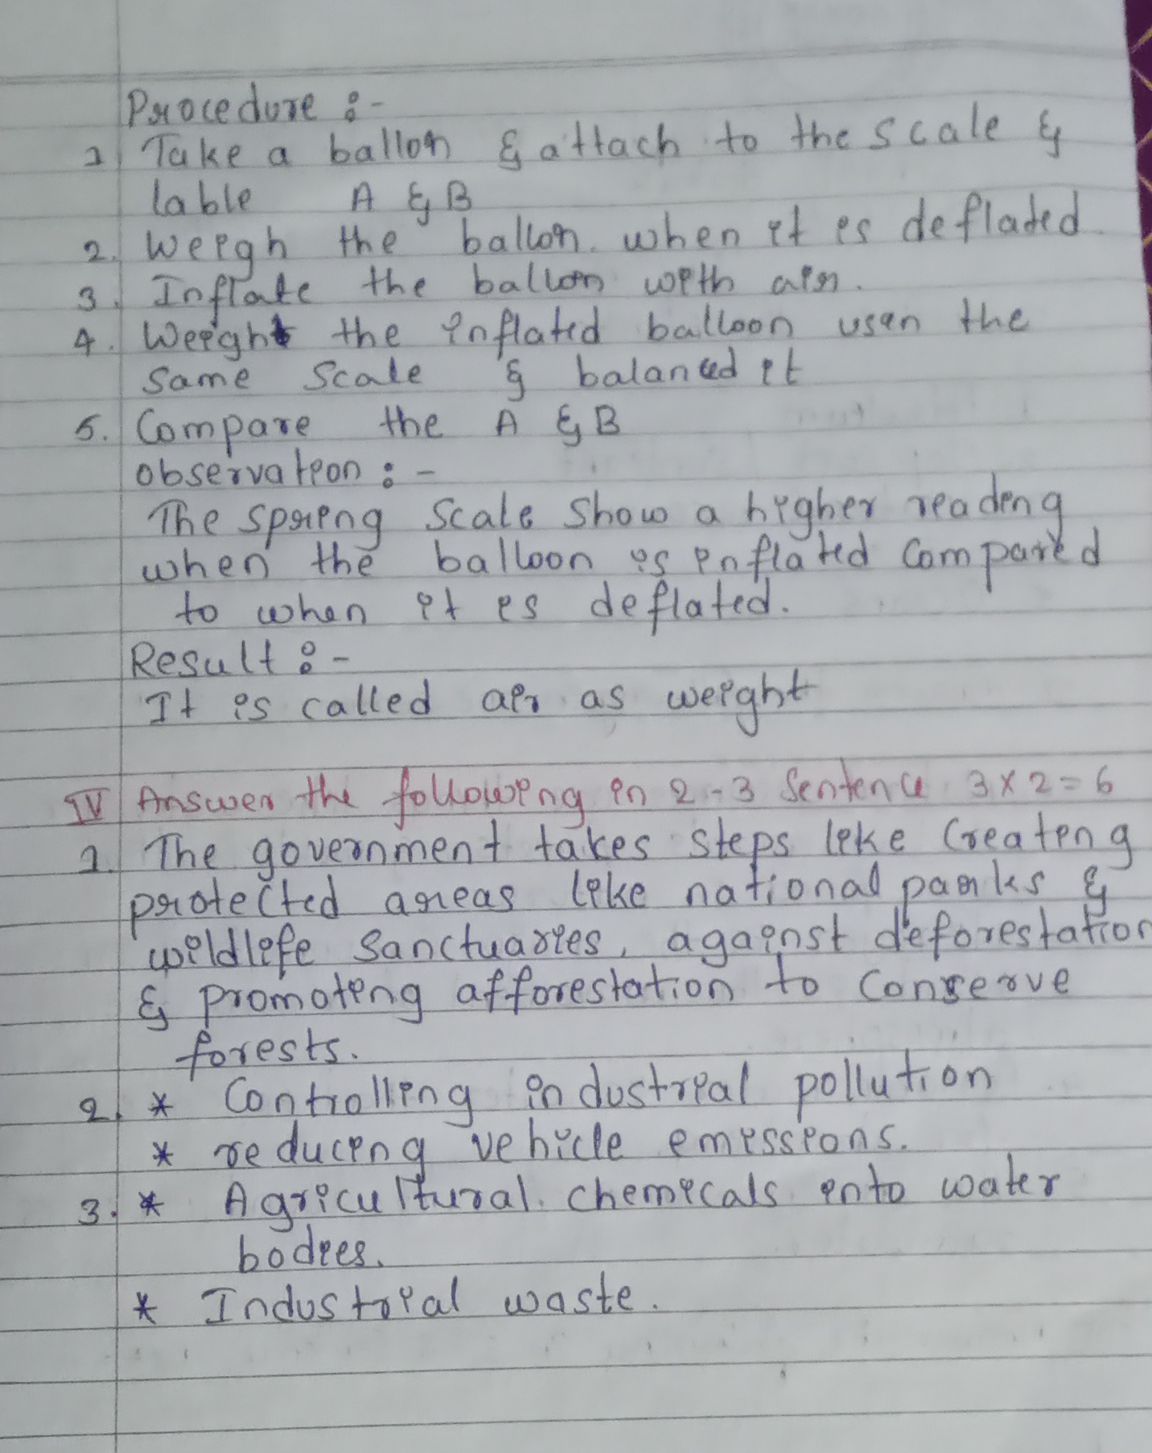 Procedure :-
1 Take a ballon & attach to the scale &
lable A & B
2. Weigh the ballon. when it is deflated.
3. Inflate the ballon with air.
4. Weight the inflated balloon usen the
same scale & balanced it
5. Compare the A & B
observation :-
The spring scale show a higher reading
when the balloon is inflated compared
to when it is deflated.
Result :-
It is called air as weight
IV Answer the following in 2-3 sentence 3x2=6
1. The government takes steps like Creating
protected areas like national parks &
wildlife sanctuaries, against deforestation
& promoting afforestation to conserve
forests.
2. * Controlling industrial pollution
* reducing vehicle emissions.
3. * Agricultural. chemicals into water
bodies.
* Industrial waste.